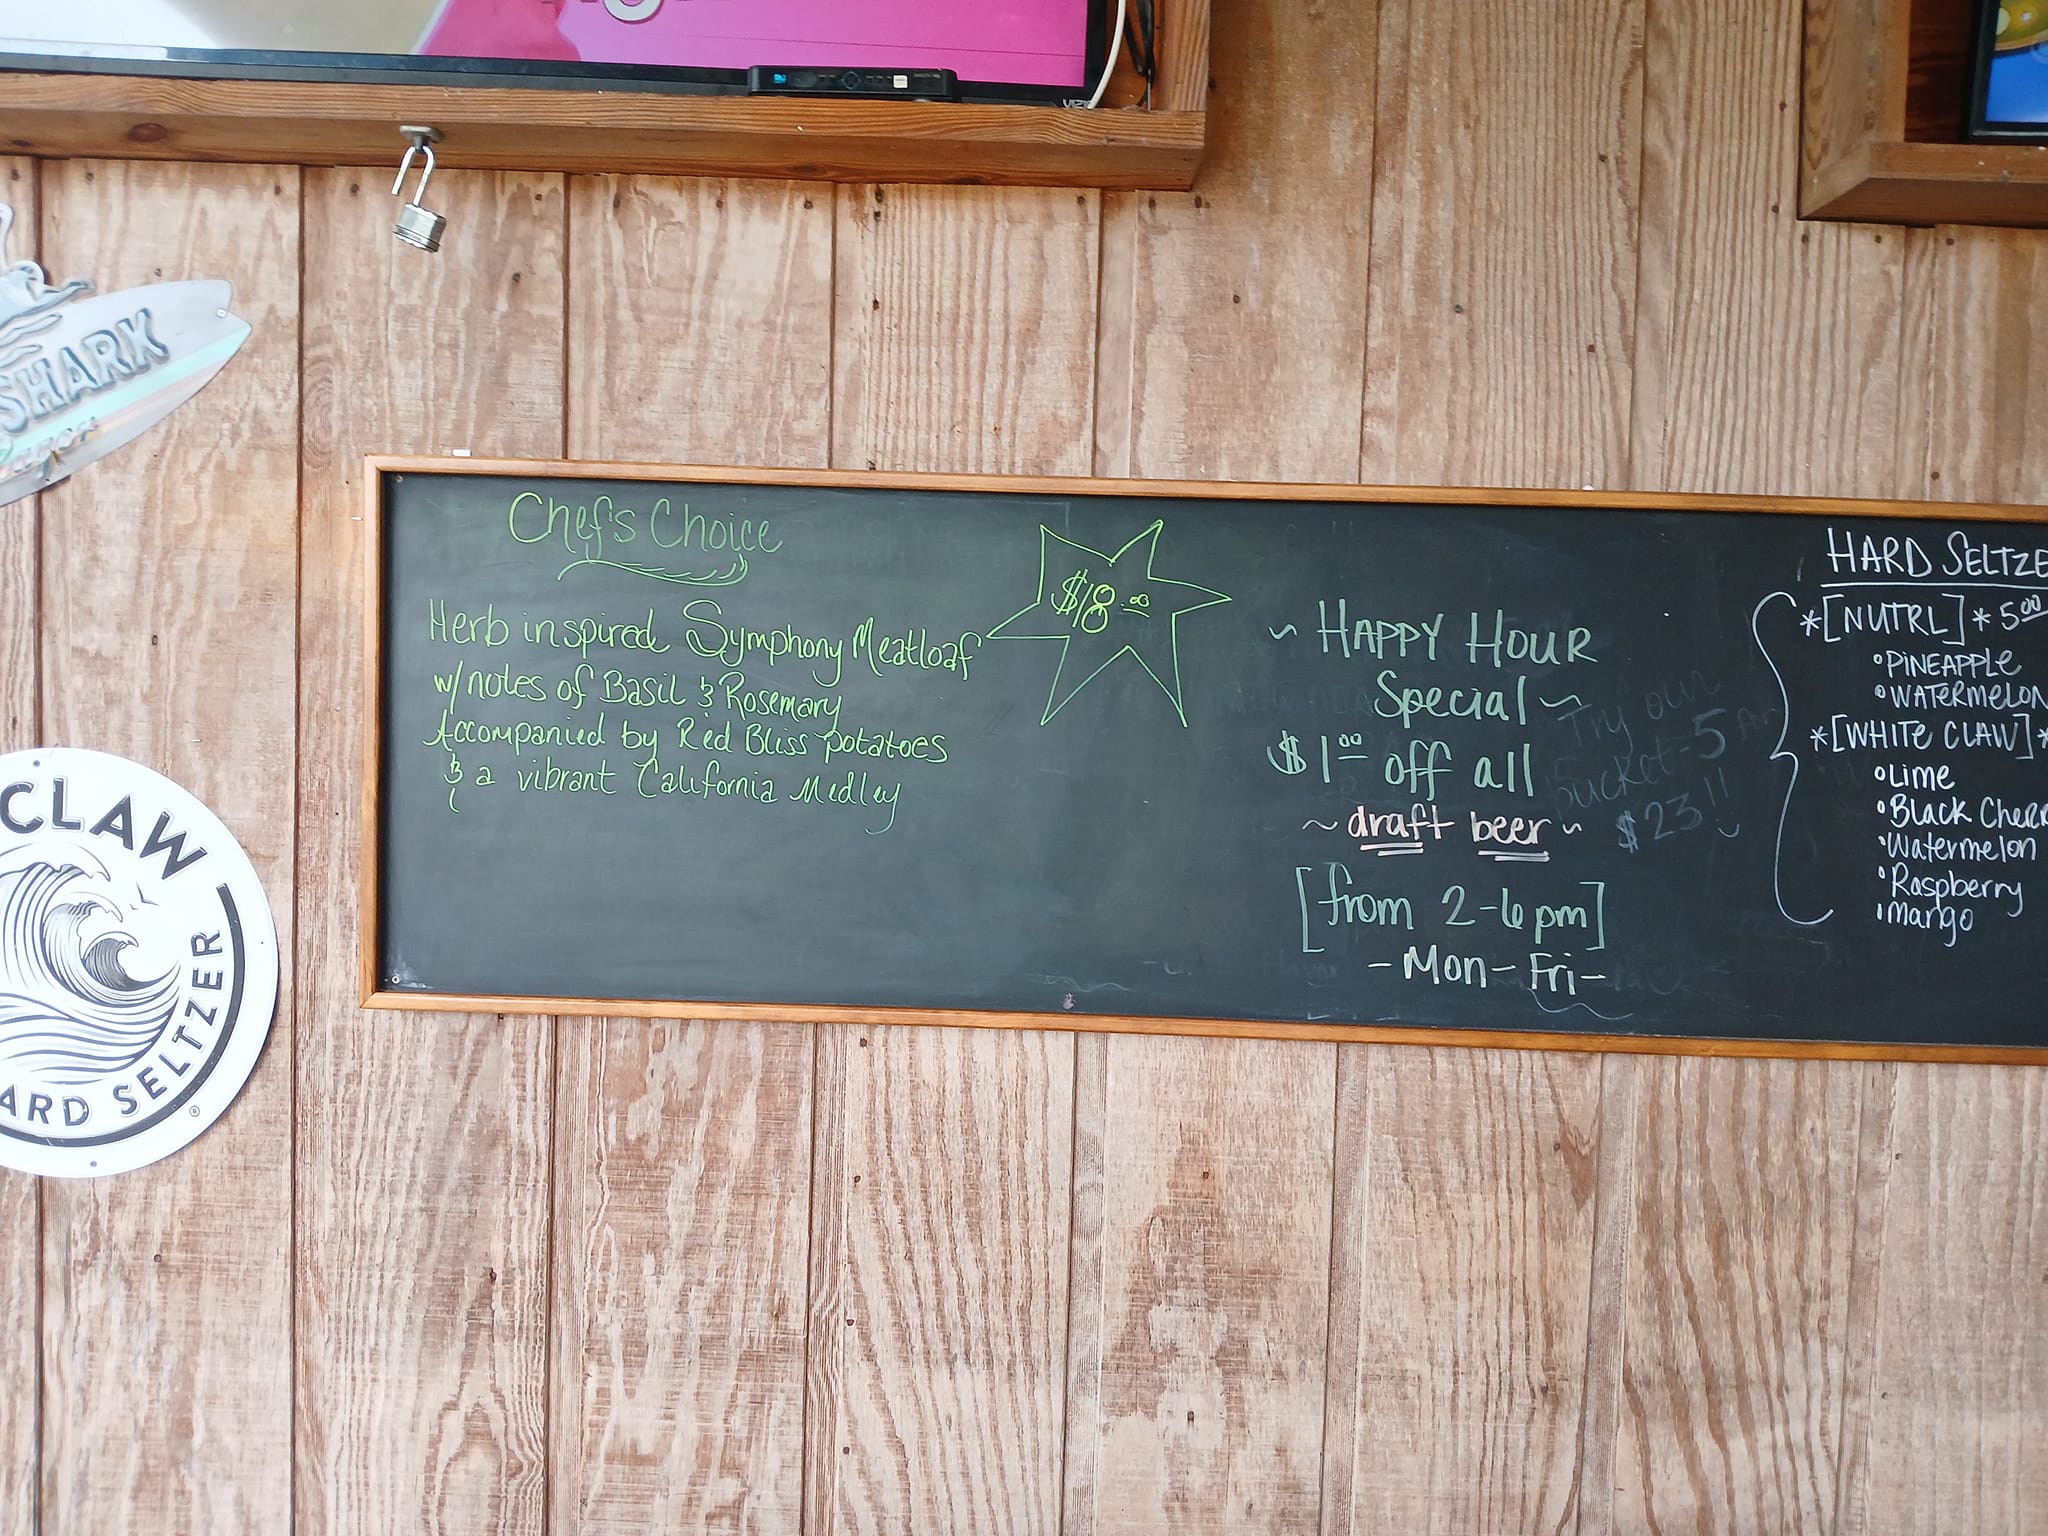 SHARK
Lager
CLAW
ARD SELTZER
Chef's Choice
$18.00
Herb inspired Symphony Meatloaf
w/ notes of Basil & Rosemary
Accompanied by Red Bliss potatoes
& a vibrant California Medley
~ HAPPY HOUR
Special ~
$1.00 off all
~ draft beer ~
[from 2-6pm]
-Mon-Fri-
Try our
bucket-5 for
$23!!
HARD SELTZE
*[NUTRL]* 5.00
PINEAPPLE
WATERMELON
*[WHITE CLAW]*
Lime
Black Cherr
Watermelon
Raspberry
mango